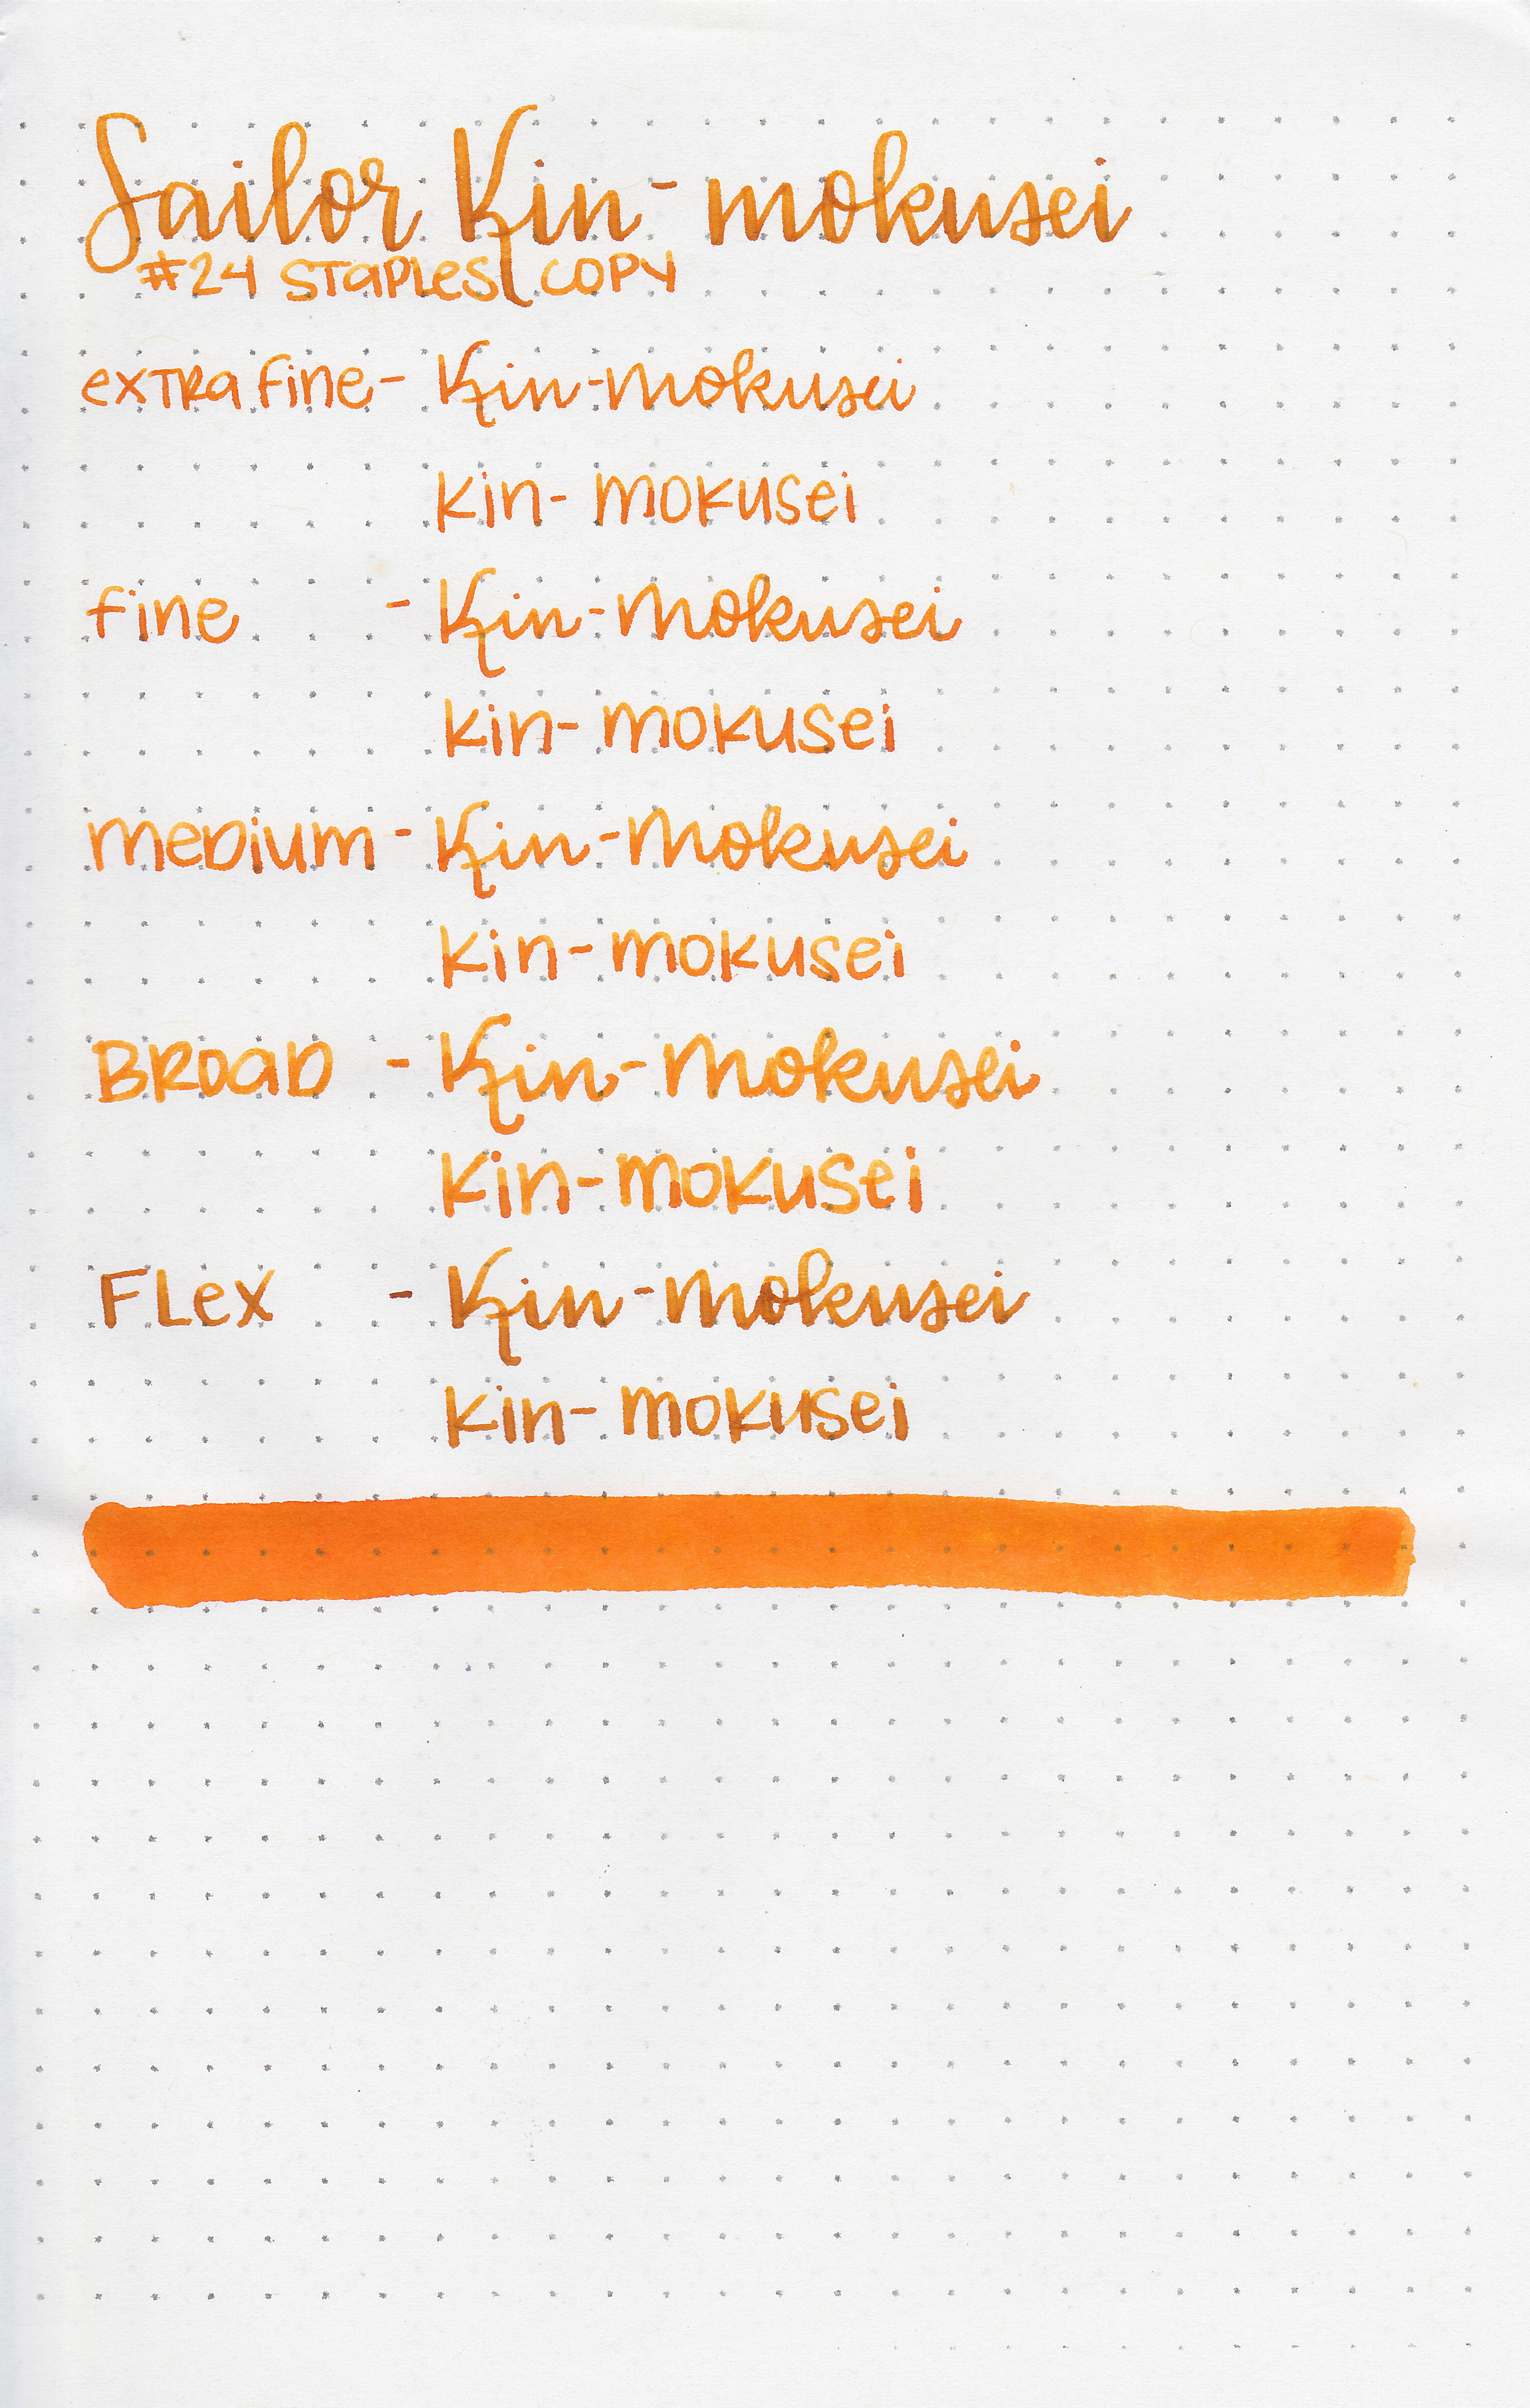 Sailor Kin-mokusei
#24 Staples Copy
extra fine - Kin-mokusei
kin-mokusei
fine - Kin-mokusei
kin-mokusei
medium - Kin-mokusei
kin-mokusei
Broad - Kin-mokusei
kin-mokusei
Flex - Kin-mokusei
kin-mokusei